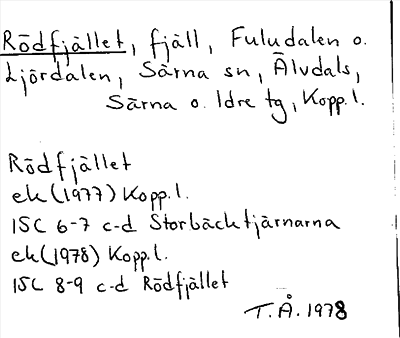 Rödfjället, fjäll, Fuludalen o.
Ljördalen, Särna sn, Älvdals,
Särna o. Idre tg, Kopp. l.
Rödfjället
ek (1977) Kopp. l.
15C 6-7 c-d Storbäcktjärnarna
ek (1978) Kopp. l.
15C 8-9 c-d Rödfjället
T.Å. 1978